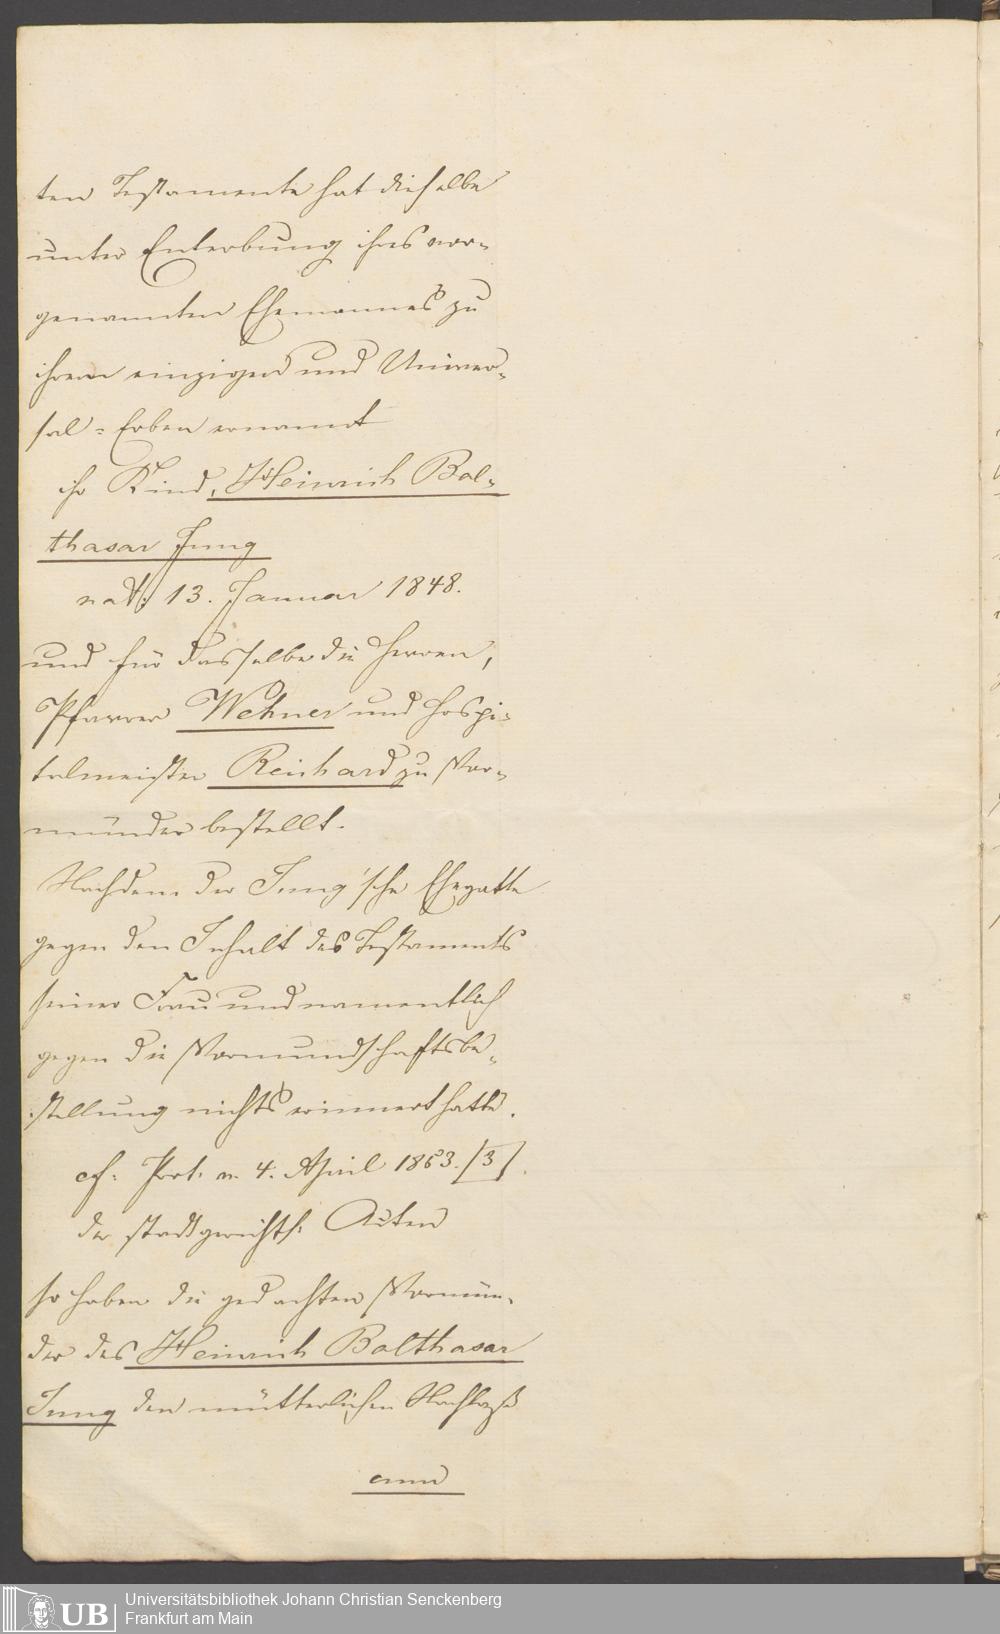 ten Testamente hat dieselbe
unter Enterbung ihres vor-
genannten Ehemannes zu
ihrem einzigen und Univer-
sal-Erben ernannt
ihr Kind, Heinrich Bal-
thasar Jung
nat: 13. Januar 1848.
und für dasselbe die Herren,
Pfarrer Wehner und Hospi-
talmeister Reichard zu Vor-
münder bestellt.
Nachdem der Jung'sche Ehegatte
gegen den Inhalt des Testaments
seiner Frau und namentlich
gegen die Vormundschaftsbe-
stellung nichts erinnert hatte.
cf. Prot. v. 4. April 1853. [3].
der stadtgerichtl. Akten
so haben die gedachten Vormün-
der des Heinrich Balthasar
Jung den mütterlichen Nachlaß
UB
Universitätsbibliothek Johann Christian Senckenberg
Frankfurt am Main